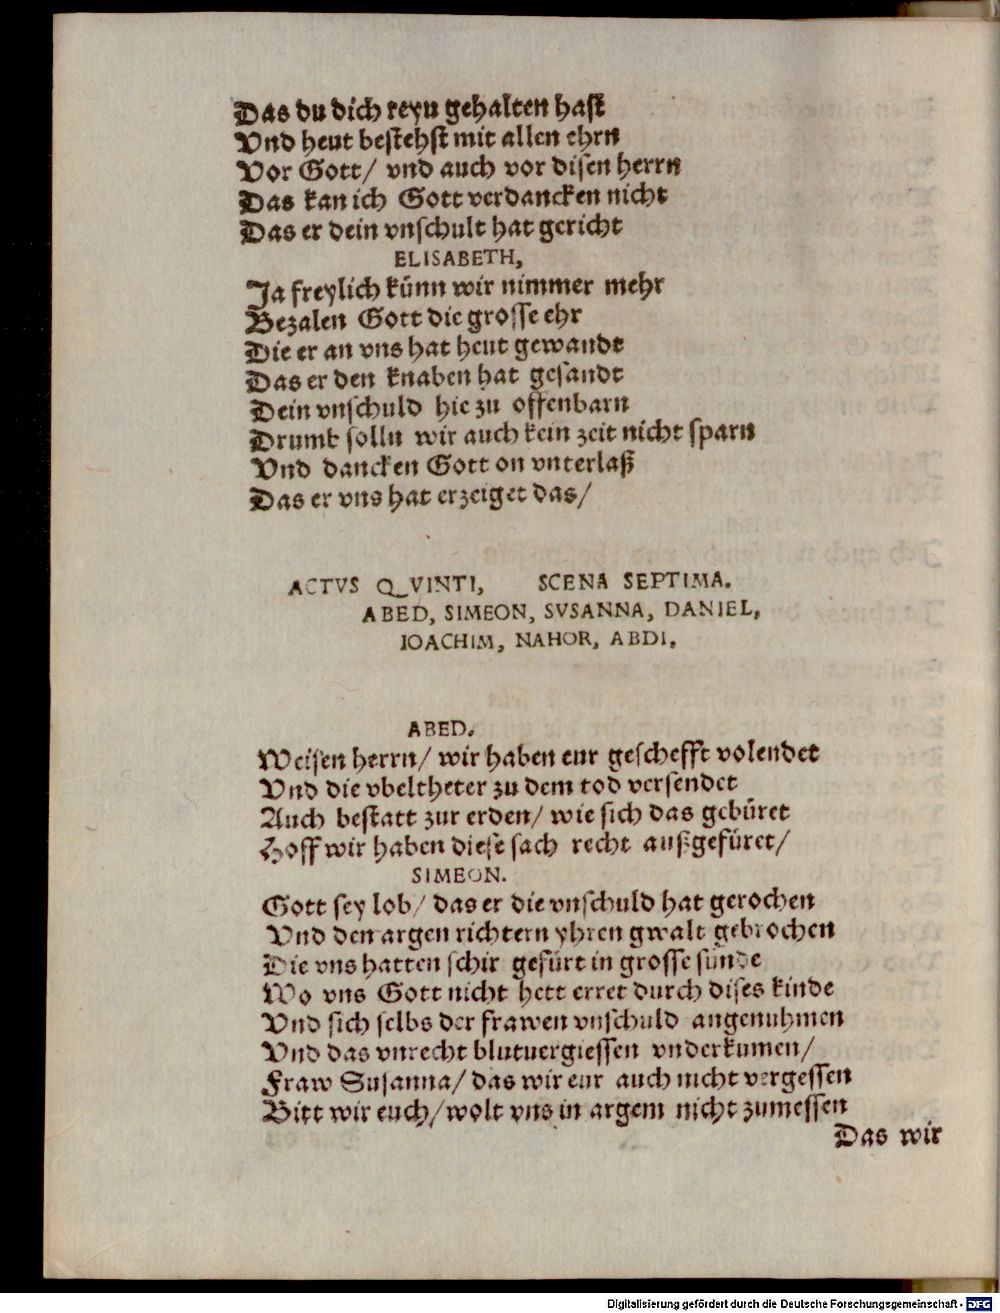 Das du dich reyn gehalten hast
Vnd heut bestehst mit allen ehrn
Vor Gott/ vnd auch vor disen herrn
Das kan ich Gott verdancken nicht
Das er dein vnschult hat gericht
ELISABETH,
Ja freylich künn wir nimmer mehr
Bezalen Gott die grosse ehr
Die er an vns hat heut gewandt
Das er den knaben hat gesandt
Dein vnschuld hie zu offenbarn
Drumb solln wir auch kein zeit nicht sparn
Vnd dancken Gott on vnterlaß
Das er vns hat erzeiget das/
ACTVS QVINTI, SCENA SEPTIMA.
ABED, SIMEON, SVSANNA, DANIEL,
IOACHIM, NAHOR, ABDI,
ABED.
Weisen herrn/ wir haben eur geschefft volendet
Vnd die vbeltheter zu dem tod versendet
Auch bestatt zur erden/ wie sich das gebüret
Hoff wir haben diese sach recht außgefüret/
SIMEON.
Gott sey lob/ das er die vnschuld hat gerochen
Vnd den argen richtern yhren gwalt gebrochen
Die vns hatten schir gefürt in grosse sünde
Wo vns Gott nicht hett erret durch dises kinde
Vnd sich selbs der frawen vnschuld angenuhmen
Vnd das vnrecht blutuergiessen vnderkumen/
Fraw Susanna/ das wir eur auch nicht vergessen
Bitt wir euch/ wolt vns in argem nicht zumessen
Das wir
Digitalisierung gefördert durch die Deutsche Forschungsgemeinschaft - DFG